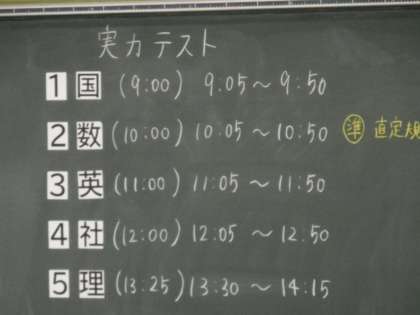 実力テスト
1 国 (9:00) 9:05～9:50
2 数 (10:00) 10:05～10:50 準 直定規
3 英 (11:00) 11:05～11:50
4 社 (12:00) 12:05～12:50
5 理 (13:25) 13:30～14:15